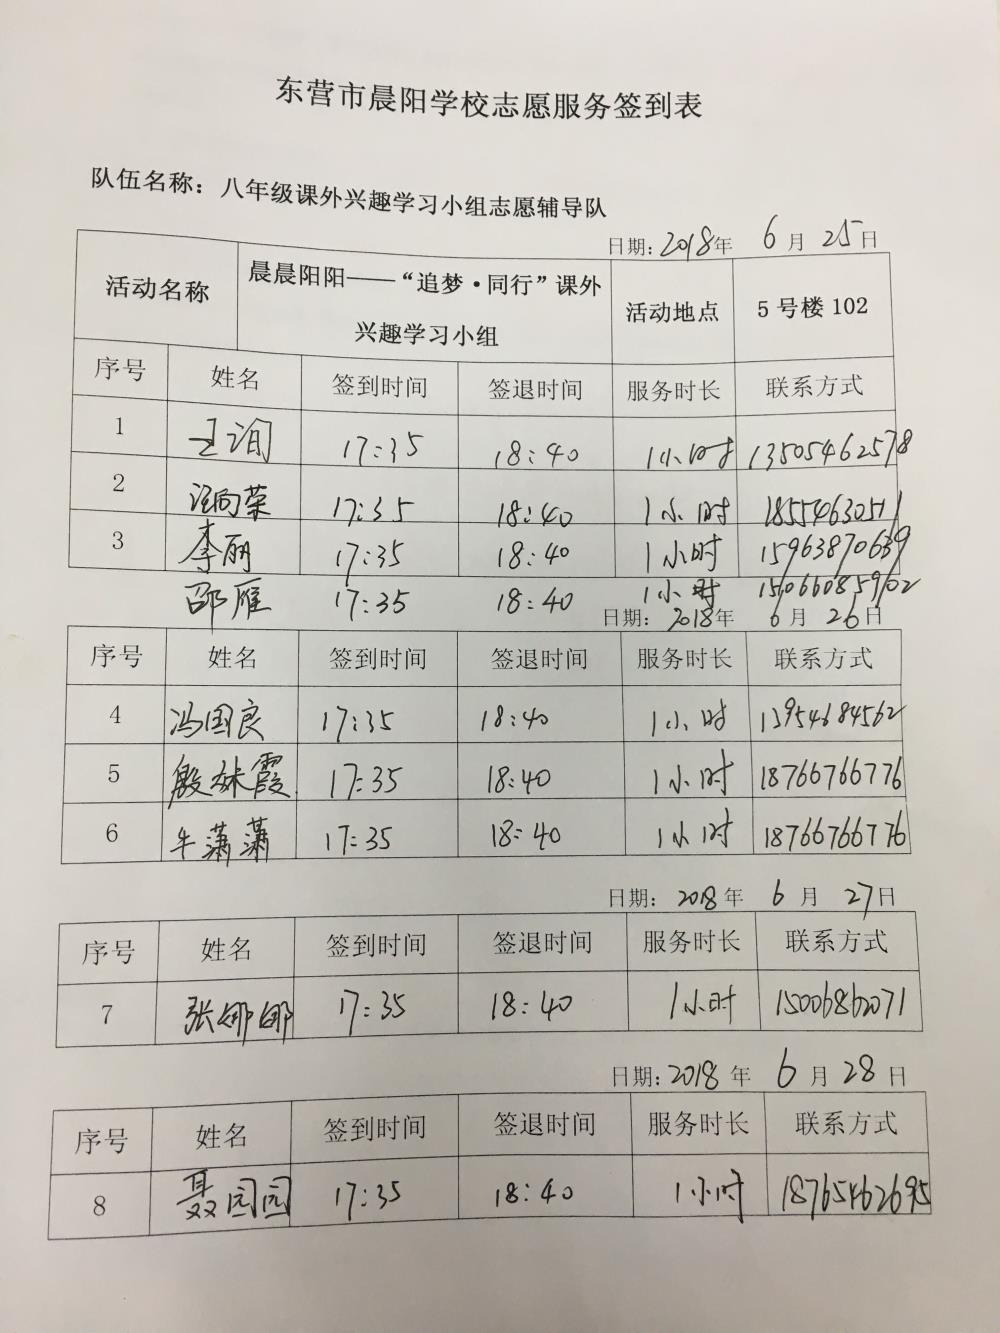 东营市晨阳学校志愿服务签到表
队伍名称：八年级课外兴趣学习小组志愿辅导队
日期：2018年 6 月 25 日
活动名称 晨晨阳阳——“追梦·同行”课外兴趣学习小组 活动地点 5 号楼 102
序号 姓名 签到时间 签退时间 服务时长 联系方式
1 王询 17:35 18:40 1小时 13505462578
2 汪向荣 17:35 18:40 1小时 18554630511
3 李丽 17:35 18:40 1小时 15963870639
邵雁 17:35 18:40 1小时 15066085902
日期： 2018年 6 月 26 日
序号 姓名 签到时间 签退时间 服务时长 联系方式
4 冯国良 17:35 18:40 1小时 13954684562
5 殷妹霞 17:35 18:40 1小时 18766766776
6 牛潇潇 17:35 18:40 1小时 18766766776
日期： 2018 年 6 月 27 日
序号 姓名 签到时间 签退时间 服务时长 联系方式
7 张娜娜 17:35 18:40 1小时 15006862071
日期：2018 年 6 月 28 日
序号 姓名 签到时间 签退时间 服务时长 联系方式
8 聂园园 17:35 18:40 1小时 18765462695